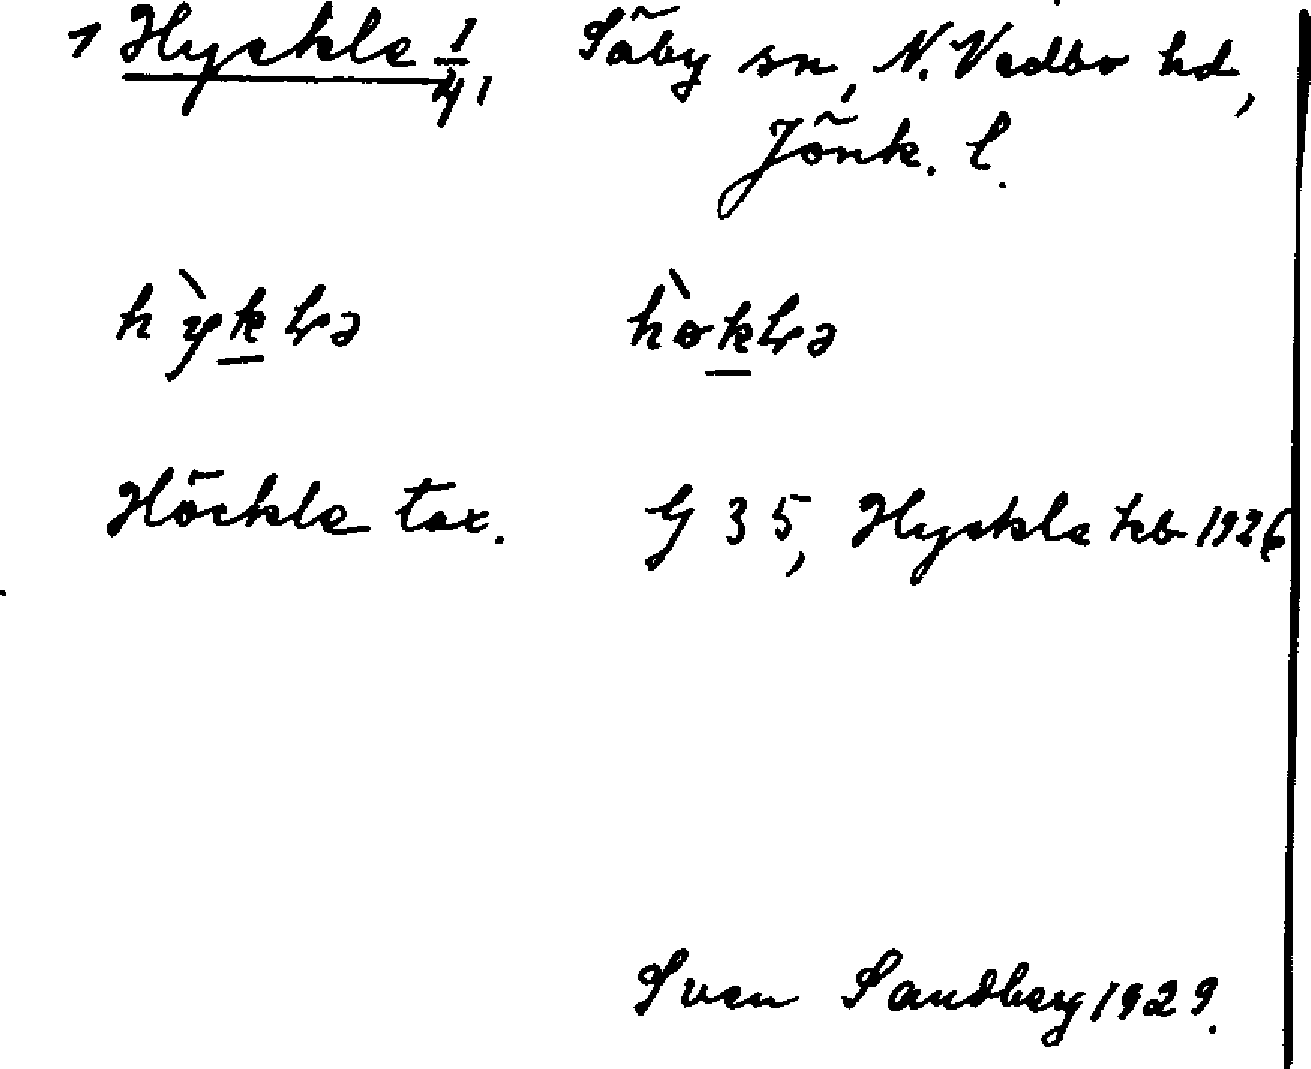 1 Hyckle 1/4, Säby sn, N. Vedbo hd,
Jönk. l.
hỳkɫə hòkɫə
Höckle tax. G 35, Hyckle kb 1926
Sven Sandberg 1929.